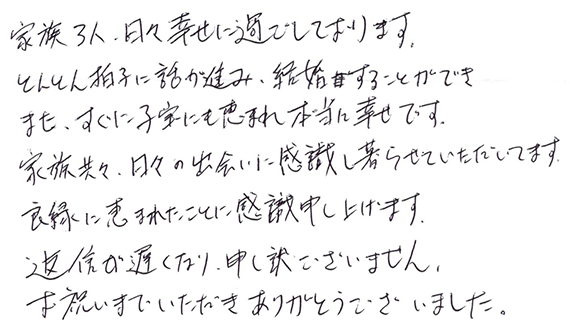 家族3人、日々幸せに過でしております。
とんとん拍子に話が進み、結婚することができ
また、すぐに子宝にも恵まれ本当に幸せです。
家族共々、日々の出会いに感識し暮らせていただいてます。
良縁に恵まれたことに感識申し上げます。
返信が遅くなり、申し訳ございません。
お祝いまでいただきありがとうございました。